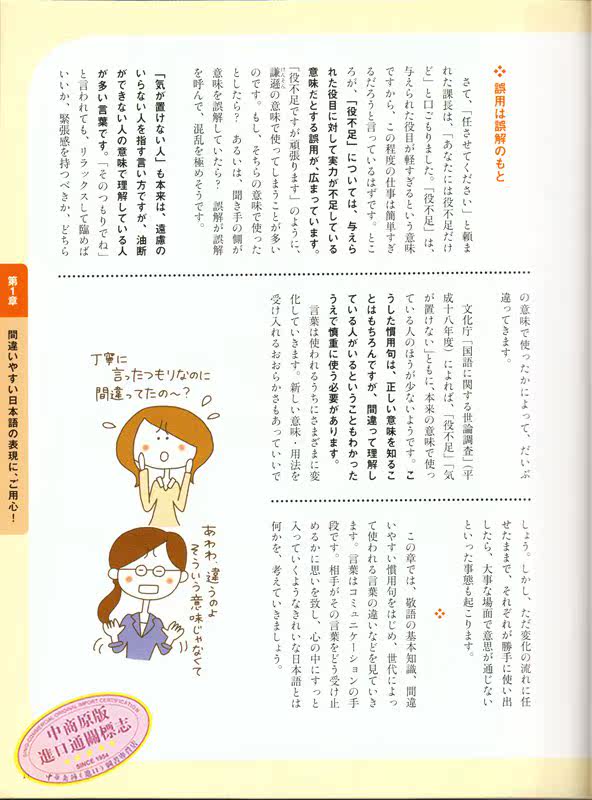 誤用は誤解のもと
さて、「任させてください」と頼ま
れた課長は、「あなたには役不足だけ
ど」と口ごもりました。「役不足」は、
与えられた役目が軽すぎるという意味
ですから、この程度の仕事は簡単すぎ
るだろうと言っているはずです。とこ
ろが、「役不足」については、与えら
れた役目に対して実力が不足している
意味だとする誤用が、広まっています。
「役不足ですが頑張ります」のように、
謙遜の意味で使ってしまうことが多い
のです。もし、そちらの意味で使った
としたら? あるいは、聞き手の側が
意味を誤解していたら? 誤解が誤解
を呼んで、混乱を極めそうです。
「気が置けない人」も本来は、遠慮の
いらない人を指す言い方ですが、油断
ができない人の意味で理解している人
が多い言葉です。「そのつもりでね」
と言われても、リラックスして臨めば
いいか、緊張感を持つべきか、どちら
の意味で使ったかによって、だいぶ
違ってきます。
文化庁「国語に関する世論調査」(平
成十八年度)によれば、「役不足」「気
が置けない」ともに、本来の意味で使っ
ている人のほうが少ないようです。こ
うした慣用句は、正しい意味を知るこ
とはもちろんですが、間違って理解し
ている人がいるということもわかった
うえで慎重に使う必要があります。
言葉は使われるうちにさまざまに変
化していきます。新しい意味・用法を
受け入れるおおらかさもあっていいで
しょう。しかし、ただ変化の流れに任
せたままで、それぞれが勝手に使い出
したら、大事な場面で意思が通じない
といった事態も起こります。
この章では、敬語の基本知識、間違
いやすい慣用句をはじめ、世代によっ
て使われる言葉の違いなどを見ていき
ます。言葉はコミュニケーションの手
段です。相手がその言葉をどう受け止
めるかに思いを致し、心の中にすっと
入っていくようなきれいな日本語とは
何かを、考えていきましょう。
丁寧に
言ったつもりなのに
間違ってたの〜?
あわわ、違うのよ
そういう意味じゃなくて
第1章
間違いやすい日本語の表現に、ご用心!
中商原版
進口通關標志
SINCE 1954